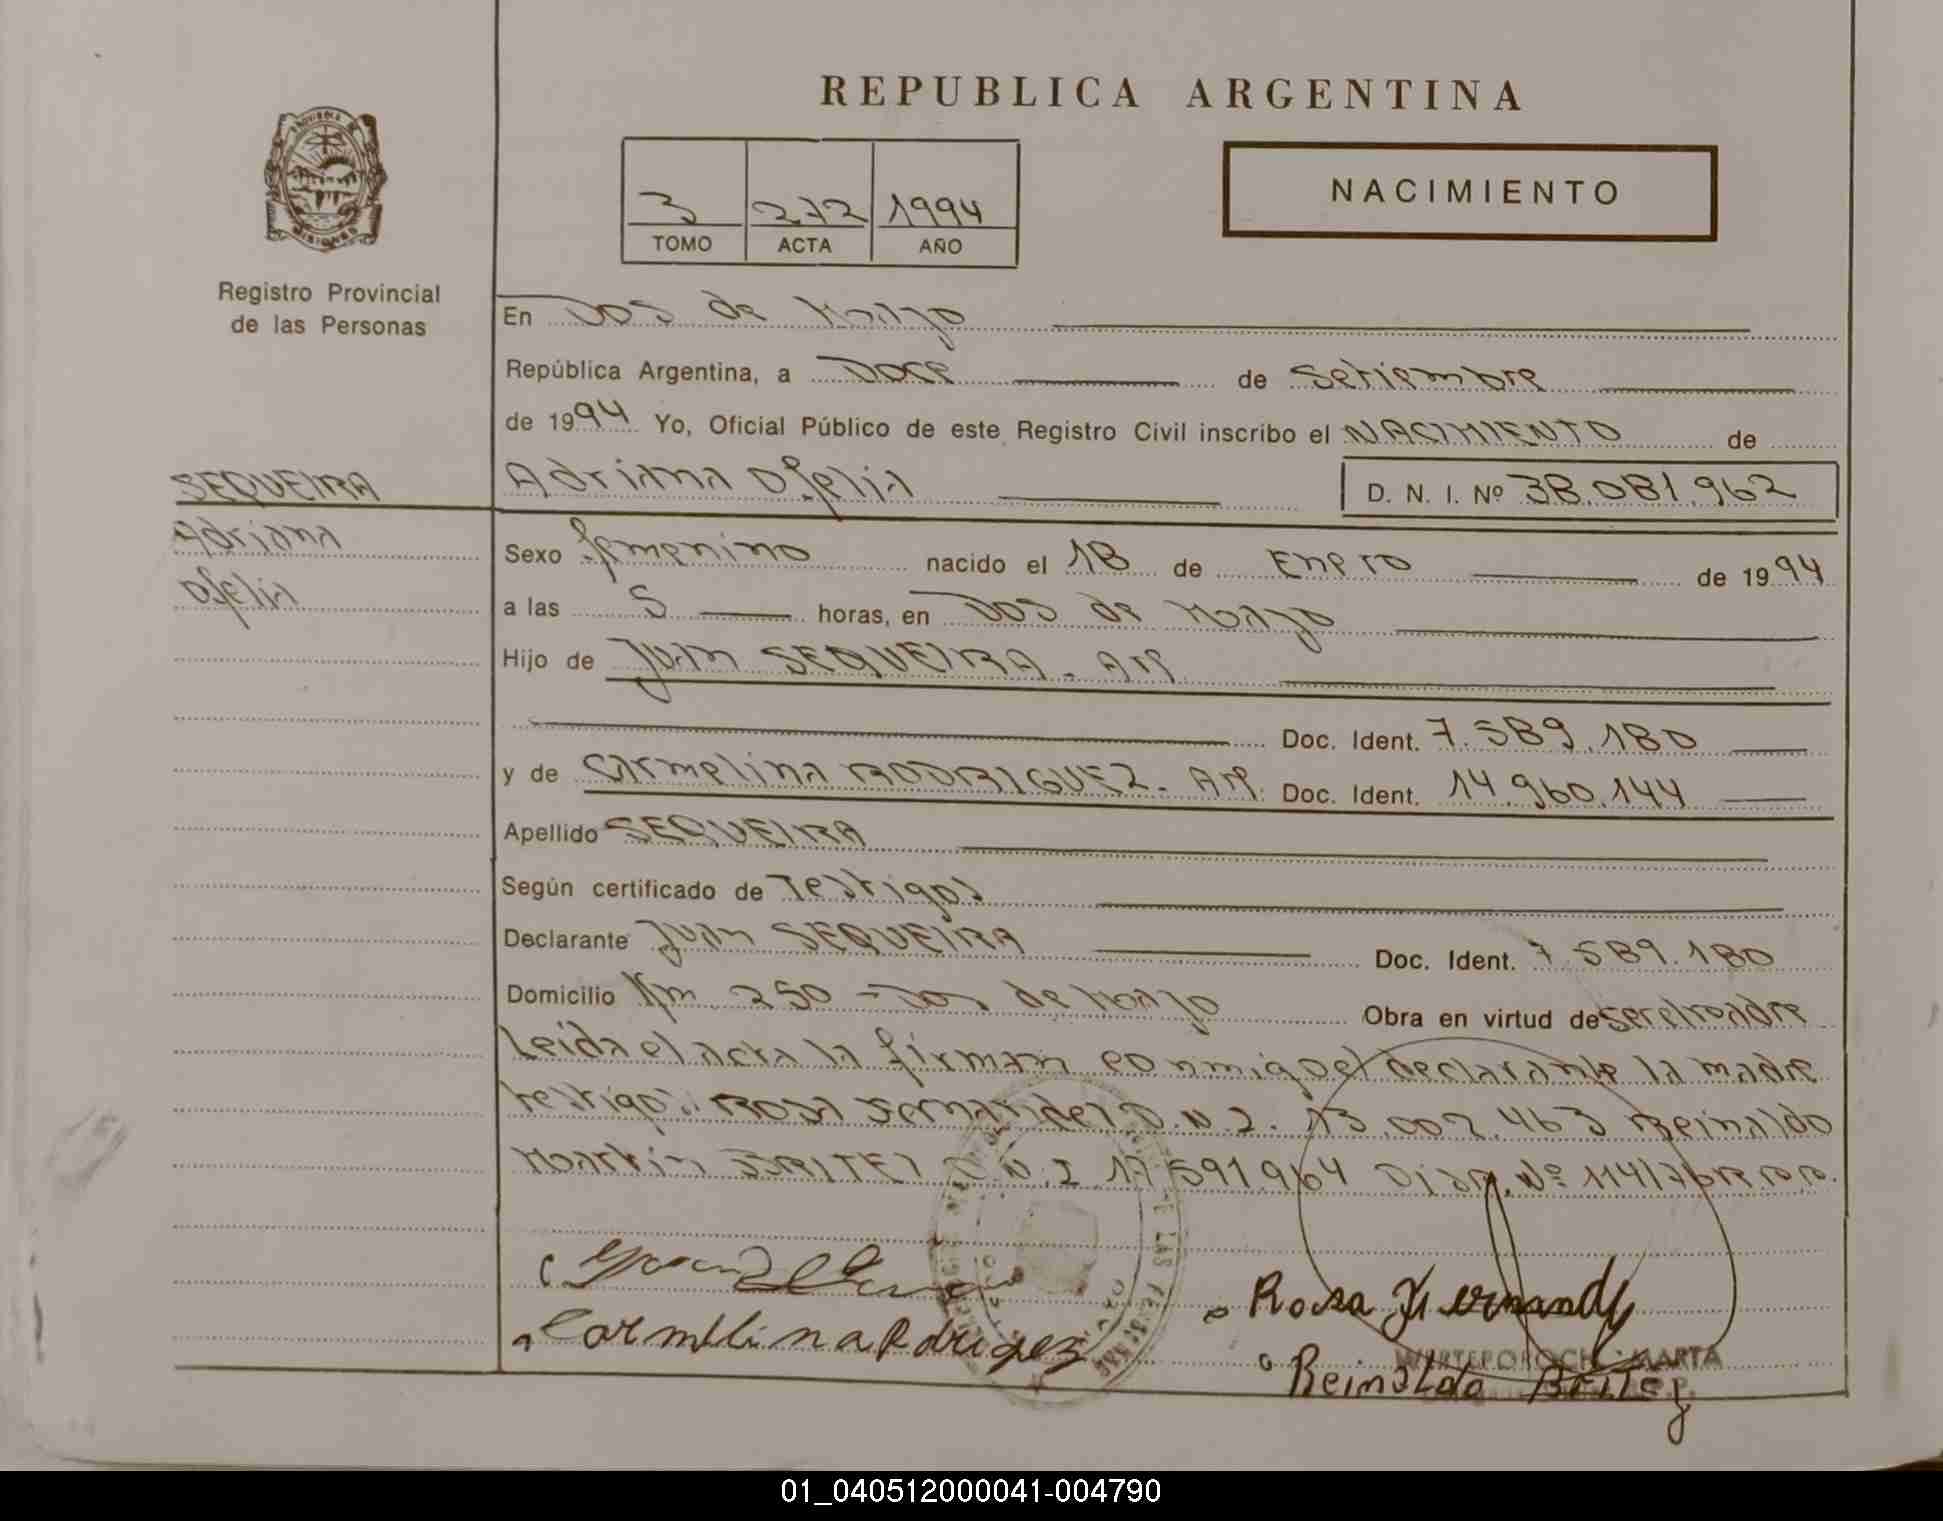 REPUBLICA ARGENTINA
PROVINCIA DE
MISIONES
Registro Provincial
de las Personas
3 272 1994
TOMO ACTA AÑO
NACIMIENTO
En Dos de Mayo
República Argentina, a Doce de Setiembre
de 1994 Yo, Oficial Público de este Registro Civil inscribo el NACIMIENTO de
SEQUEIRA
Adriana Ofelia D. N. I. Nº 38.081.962
Adriana
Ofelia
Sexo femenino nacido el 18 de Enero de 1994
a las 5 horas, en Dos de Mayo
Hijo de Juan SEQUEIRA. Arg.
Doc. Ident. 7.589.180
y de Carmelina RODRIGUEZ. Arg. Doc. Ident. 14.960.144
Apellido SEQUEIRA
Según certificado de Testigos
Declarante Juan SEQUEIRA Doc. Ident. 7.589.180
Domicilio Km 250 - Dos de Mayo Obra en virtud de ser el padre
Leida el acta la firman conmigo el declarante la madre
testigos: Rosa Fernandez D.N.I. 13.002.463 Reinaldo
Martin BRITEZ D.N.I 17.591.964 Disp. Nº 114/76
Carmelina Rodriguez
Rosa Fernandez
WERTEPOROCH MARTA
Reinaldo Britez
01_040512000041-004790